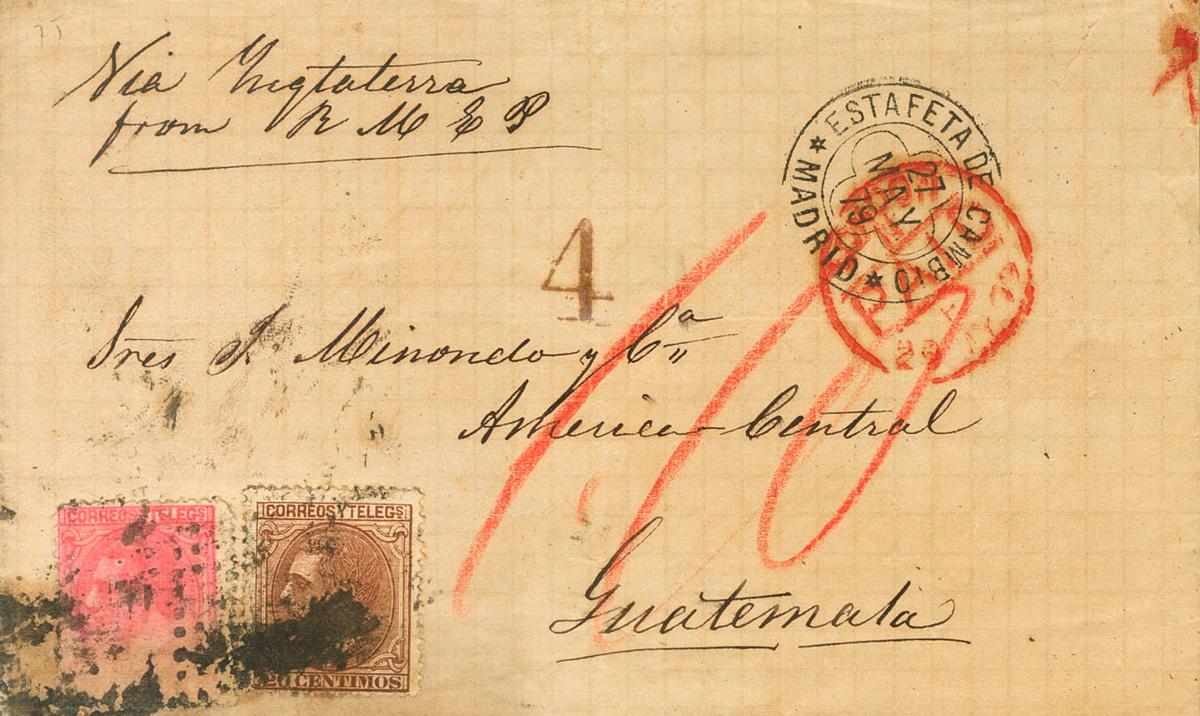 75
Via Ingtaterra
from R M E P
ESTAFETA DE CAMBIO
MADRID
27
MAY
79
4
Sres J. Minondo y Cª
America Central
1/10
LONDON
PAID
MY 29
Guatemala
CORREOS Y TELEGS
CORREOS Y TELEGS
20 CENTIMOS